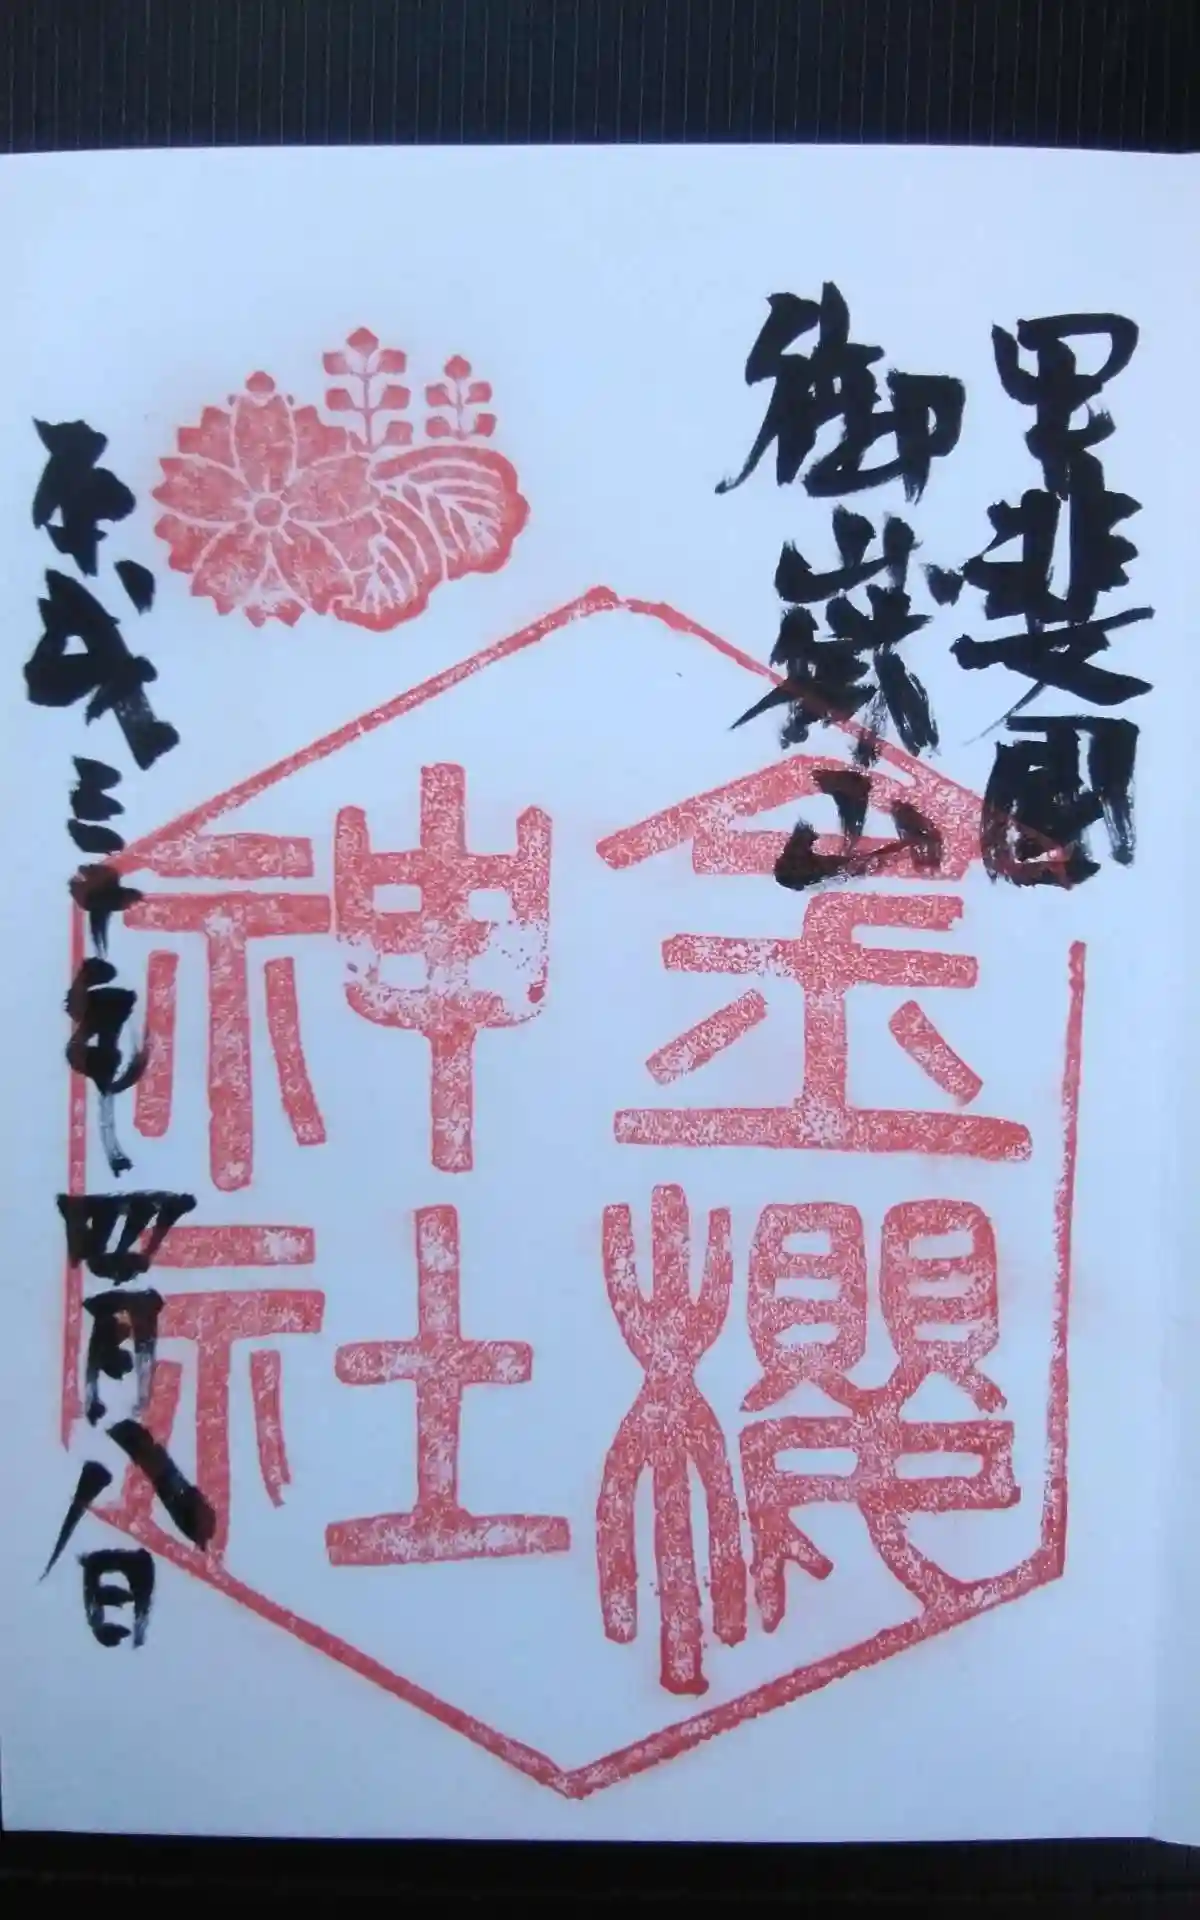 甲斐国
御嶽山
金櫻
神社
平成三十年四月八日